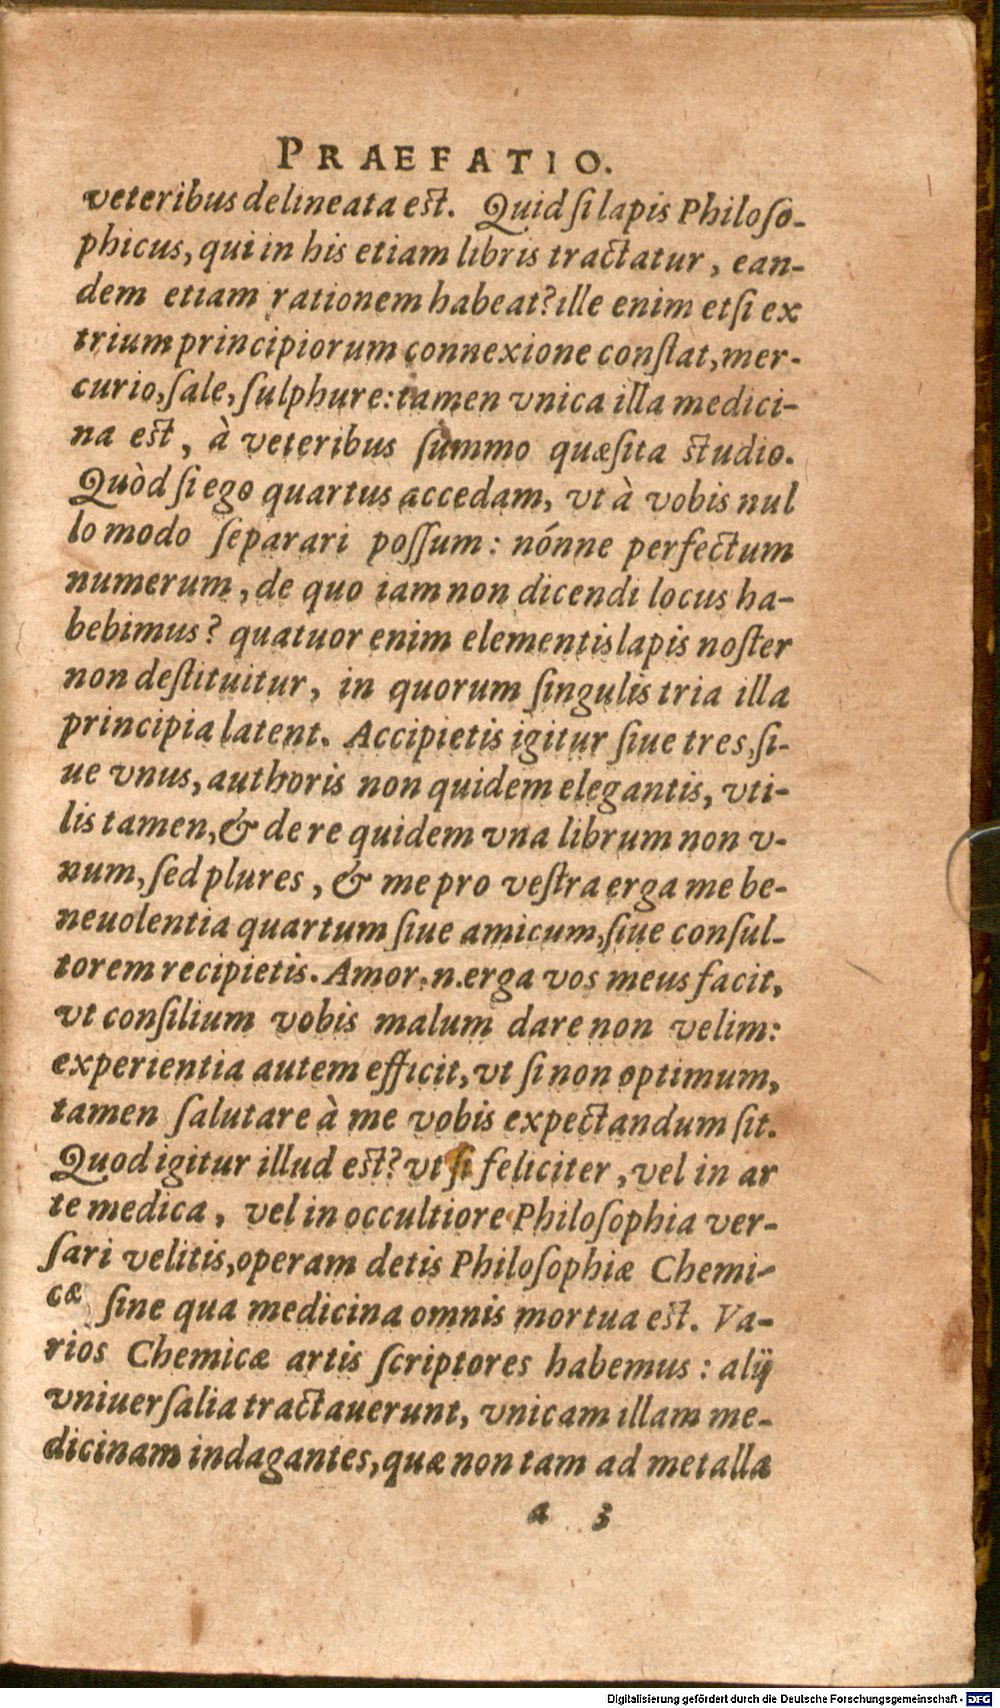 PRAEFATIO.
veteribus delineata est. Quid si lapis Philoso-
phicus, qui in his etiam libris tractatur, ean-
dem etiam rationem habeat? ille enim etsi ex
trium principiorum connexione constat, mer-
curio, sale, sulphure: tamen vnica illa medici-
na est, à veteribus summo quæsita studio.
Quòd si ego quartus accedam, vt à vobis nul
lo modo separari possum: nónne perfectum
numerum, de quo iam non dicendi locus ha-
bebimus? quatuor enim elementis lapis noster
non destituitur, in quorum singulis tria illa
principia latent. Accipietis igitur siue tres, si-
ue vnus, authoris non quidem elegantis, vti-
lis tamen, & de re quidem vna librum non v-
num, sed plures, & me pro vestra erga me be-
neuolentia quartum siue amicum, siue consul-
torem recipietis. Amor .n. erga vos meus facit,
vt consilium vobis malum dare non velim:
experientia autem efficit, vt si non optimum,
tamen salutare à me vobis expectandum sit.
Quod igitur illud est? vt si feliciter, vel in ar
te medica, vel in occultiore Philosophia ver-
sari velitis, operam detis Philosophiæ Chemi-
cæ sine qua medicina omnis mortua est. Va-
rios Chemicæ artis scriptores habemus: alij
vniuersalia tractauerunt, vnicam illam me-
dicinam indagantes, quæ non tam ad metalla
a 3
Digitalisierung gefördert durch die Deutsche Forschungsgemeinschaft - DFG